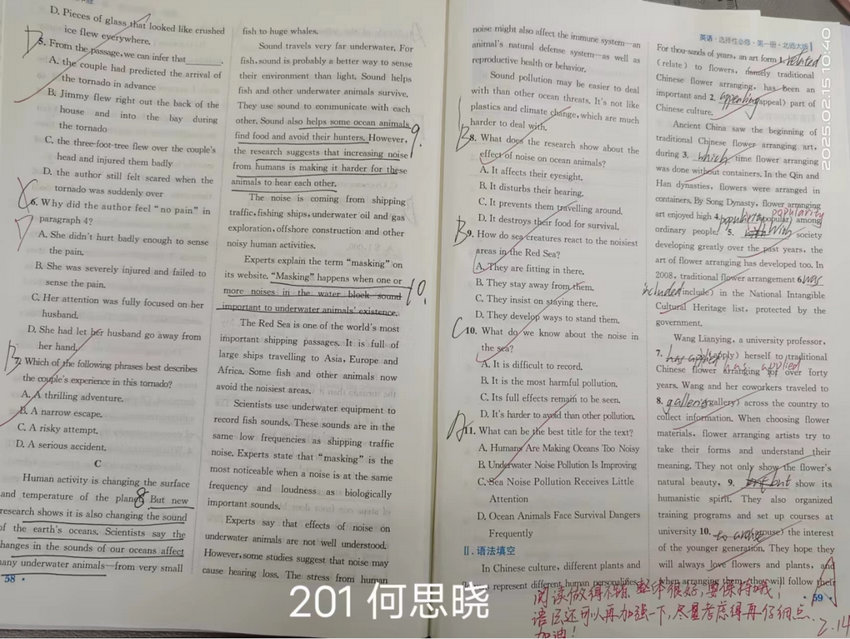 D. Pieces of glass that looked like crushed
ice flew everywhere.
D5. From the passage, we can infer that
A. the couple had predicted the arrival of
the tornado in advance
B. Jimmy flew right out the back of the
house and into the bay during
the tornado
C. the three-foot-tree flew over the couple's
head and injured them badly
D. the author still felt scared when the
tornado was suddenly over
C6. Why did the author feel "no pain" in
D
paragraph 4?
A. She didn't hurt badly enough to sense
the pain.
B. She was severely injured and failed to
sense the pain.
C. Her attention was fully focused on her
husband.
D. She had let her husband go away from
her hand.
B7. Which of the following phrases best describes
the couple's experience in this tornado?
A. A thrilling adventure.
B. A narrow escape.
C. A risky attempt.
D. A serious accident.
C
Human activity is changing the surface
and temperature of the planet. 8 But new
research shows it is also changing the sound
of the earth's oceans. Scientists say the
changes in the sounds of our oceans affect
many underwater animals—from very small
58
fish to huge whales.
Sound travels very far underwater. For
fish, sound is probably a better way to sense
their environment than light. Sound helps
fish and other underwater animals survive.
They use sound to communicate with each
other. Sound also helps some ocean animals
find food and avoid their hunters. However, 9.
the research suggests that increasing noise
from humans is making it harder for these
animals to hear each other.
The noise is coming from shipping
traffic, fishing ships, underwater oil and gas
exploration, offshore construction and other
noisy human activities.
Experts explain the term "masking" on
its website. "Masking" happens when one or
more noises in the water block sound 10.
important to underwater animals' existence.
The Red Sea is one of the world's most
important shipping passages. It is full of
large ships travelling to Asia, Europe and
Africa. Some fish and other animals now
avoid the noisiest areas.
Scientists use underwater equipment to
record fish sounds. These sounds are in the
same low frequencies as shipping traffic
noise. Experts state that "masking" is the
most noticeable when a noise is at the same
frequency and loudness as biologically
important sounds.
Experts say that effects of noise on
underwater animals are not well understood.
However, some studies suggest that noise may
cause hearing loss. The stress from human
noise might also affect the immune system—an
animal's natural defense system—as well as
reproductive health or behavior.
Sound pollution may be easier to deal
with than other ocean threats. It's not like
plastics and climate change, which are much
harder to deal with.
B8. What does the research show about the
effect of noise on ocean animals?
A. It affects their eyesight.
B. It disturbs their hearing.
C. It prevents them travelling around.
D. It destroys their food for survival.
B9. How do sea creatures react to the noisiest
areas in the Red Sea?
A. They are fitting in there.
B. They stay away from them.
C. They insist on staying there.
D. They develop ways to stand them.
C10. What do we know about the noise in
the sea?
A. It is difficult to record.
B. It is the most harmful pollution.
C. Its full effects remain to be seen.
D. It's harder to avoid than other pollution.
A11. What can be the best title for the text?
A. Humans Are Making Oceans Too Noisy
B. Underwater Noise Pollution Is Improving
C. Sea Noise Pollution Receives Little
Attention
D. Ocean Animals Face Survival Dangers
Frequently
Ⅱ. 语法填空
In Chinese culture, different plants and
represent different human personalities.
英语·选择性必修·第一册·北师大版
For thousands of years, an art form 1. related
(relate) to flowers, namely traditional
Chinese flower arranging, has been an
important and 2. appealing (appeal) part of
Chinese culture.
Ancient China saw the beginning of
traditional Chinese flower arranging art,
during 3. which time flower arranging
was done without containers. In the Qin and
Han dynasties, flowers were arranged in
containers. By Song Dynasty, flower arranging
popularity
art enjoyed high 4. (popular) among
ordinary people. 5. With society
developing greatly over the past years, the
art of flower arrangement has developed too. In
2008, traditional flower arrangement 6. was
included (include) in the National Intangible
Cultural Heritage list, protected by the
government.
Wang Lianying, a university professor,
7. has applied (apply) herself to traditional
has applied
Chinese flower arranging for over forty
years. Wang and her coworkers traveled to
8. galleries (gallery) across the country to
collect information. When choosing flower
materials, flower arranging artists try to
take their forms and understand their
meaning. They not only show the flower's
natural beauty, 9. but show its
humanistic spirit. They also organized
training programs and set up courses at
university 10. to arouse (arouse) the interest
of the younger generation. They hope they
will always love flowers and plants, and
when arranging them, they will follow their
59
阅读做得不错 整体很好,要保持哦!
语法还可以再加强一下,尽量考虑得再仔细点.
加油!
2.14
2025.02.15 10:40
201 何思晓